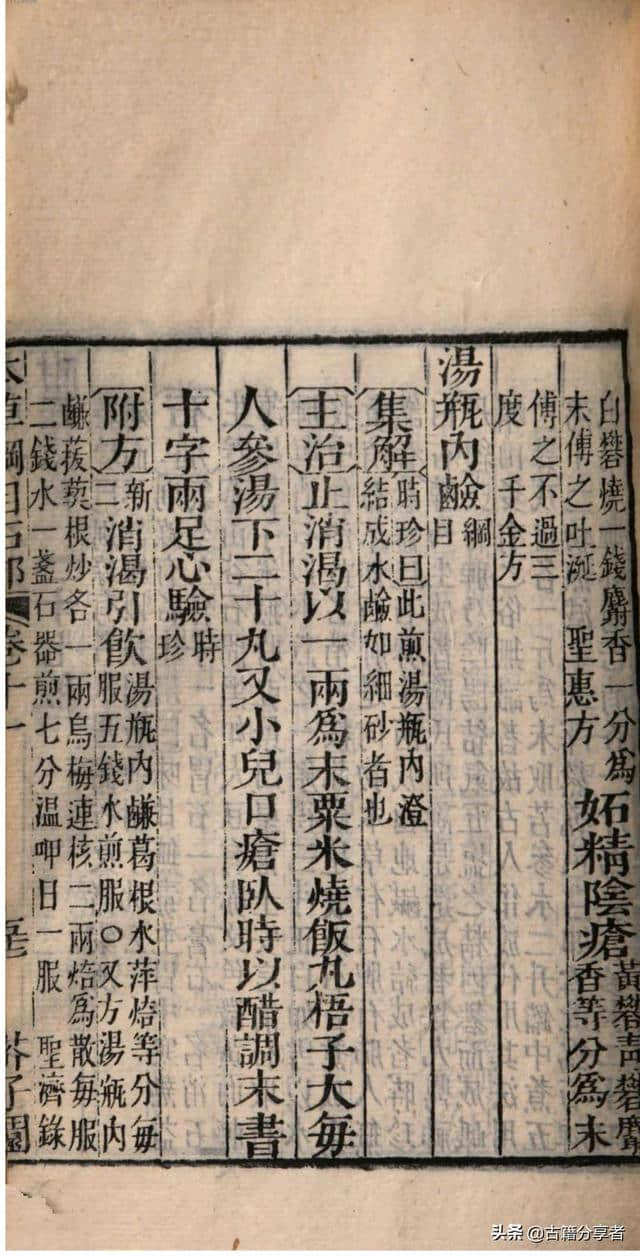 白礬燒一錢麝香一分爲
末傅之吐涎 聖惠方
妬精陰瘡
黃礬青礬麝
香等分爲末
傅之不過三
度 千金方
湯瓶內鹼
綱
目
集解
時珍曰此煎湯瓶內澄
結成水鹼如細砂者也
主治止消渴以一兩爲末粟米燒飯丸梧子大每
人參湯下二十丸又小兒口瘡臥時以醋調末書
十字兩足心驗
時
珍
附方
新
二
消渴引飲
湯瓶內鹻葛根水萍焙等分每
服五錢水煎服○又方湯瓶內
鹻菝葜根炒各一兩烏梅連核二兩焙爲散每服
二錢水一盞石器煎七分溫呷日一服 聖濟錄
本草綱目石部 卷十一
芥子園
头条 @古籍分享者